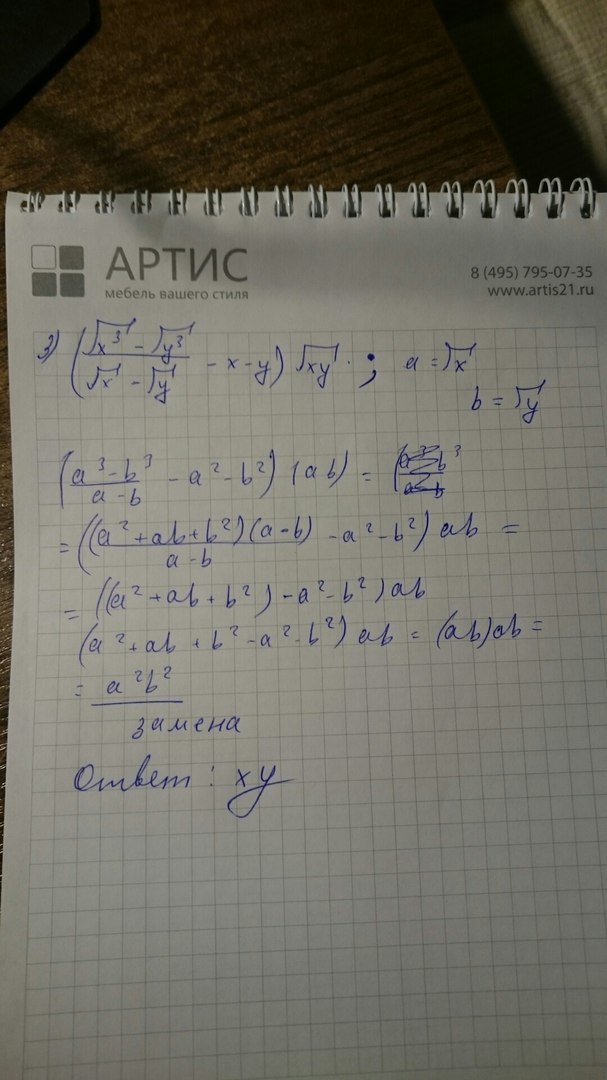 АРТИС
мебель вашего стиля
8 (495) 795-07-35
www.artis21.ru
3) ((√x³ - √y³)/(√x - √y) - x - y) √xy · ; a = √x
b = √y
((a³ - b³)/(a - b) - a² - b²) (ab) =
= ((a² + ab + b²)(a - b)/(a - b) - a² - b²) ab =
= ((a² + ab + b²) - a² - b²) ab
(a² + ab + b² - a² - b²) ab = (ab)ab =
= a²b²
замена
Ответ: xy